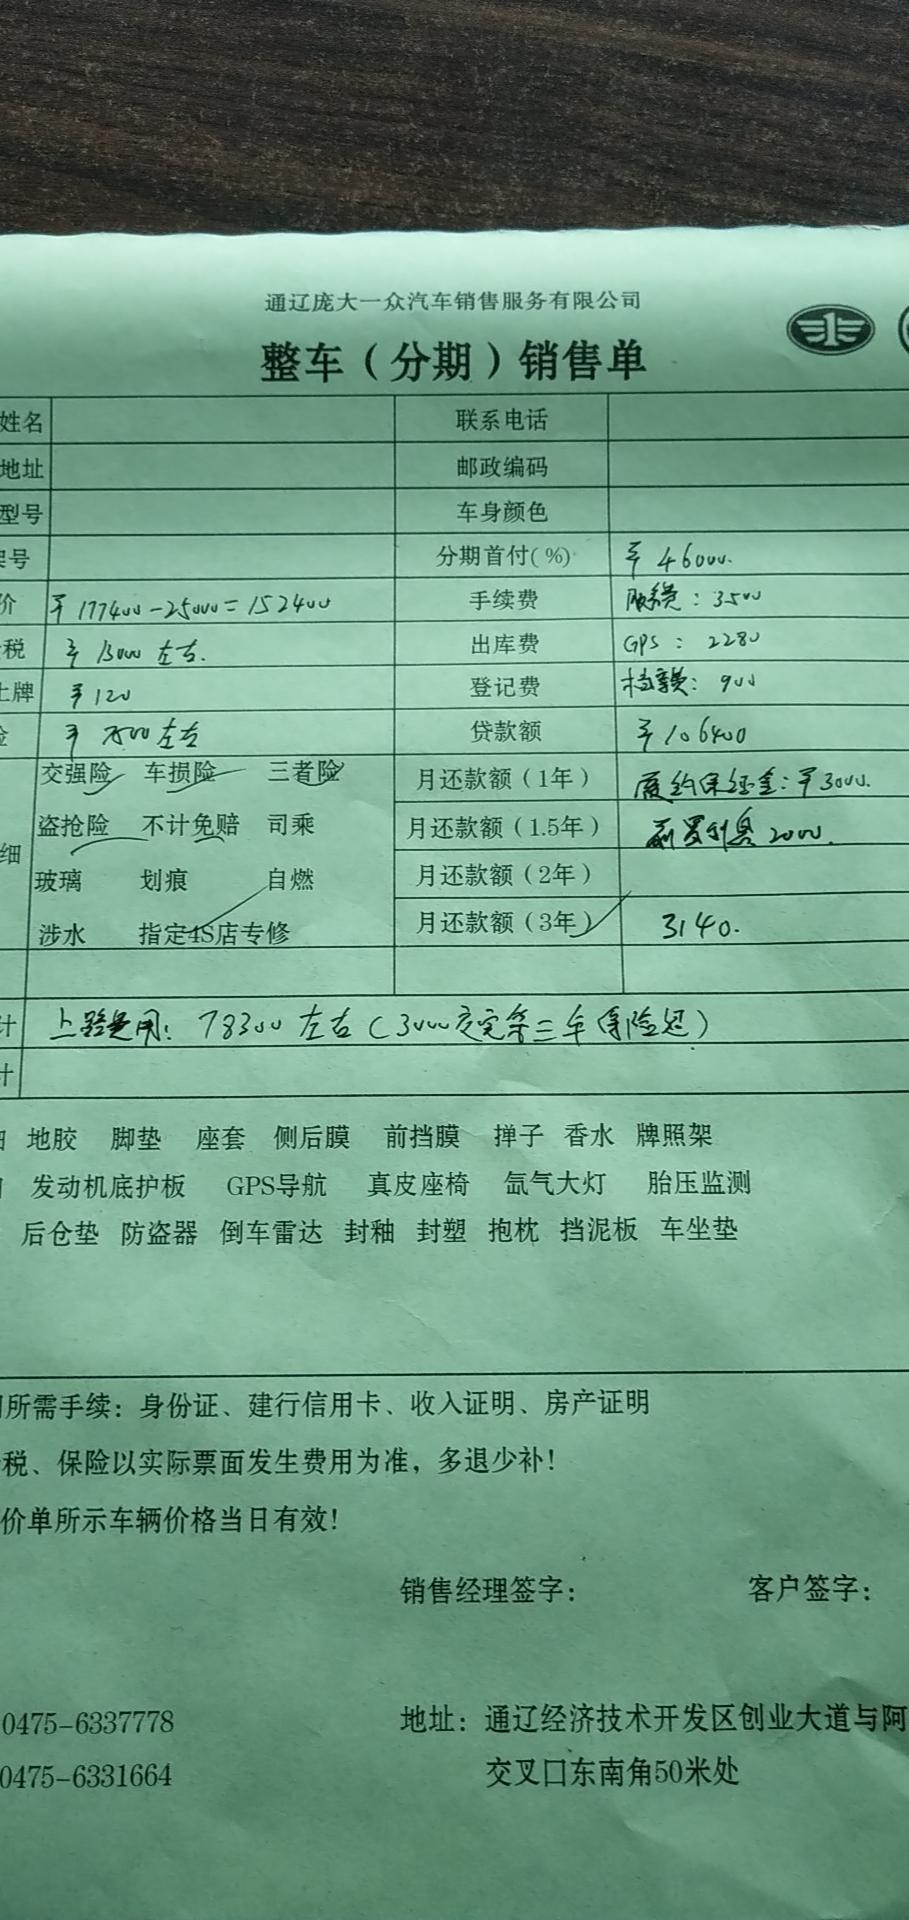 通辽庞大一众汽车销售服务有限公司
整车（分期）销售单
姓名 联系电话
地址 邮政编码
型号 车身颜色
架号 分期首付(%) ¥46000.
价 ¥177400-25000=152400 手续费 服务费：3500
税 ¥13000左右. 出库费 GPS：2280
上牌 ¥120 登记费 档案费：900
险 ¥7500左右 贷款额 ¥106400
交强险 车损险 三者险 月还款额（1年） 履约保证金：¥3000.
盗抢险 不计免赔 司乘 月还款额（1.5年） 前置利息2000.
细 玻璃 划痕 自燃 月还款额（2年）
涉水 指定4S店专修 月还款额（3年） 3140.
计 上路费用：78300左右（3000交完第三年保险退）
计
地胶 脚垫 座套 侧后膜 前挡膜 掸子 香水 牌照架
发动机底护板 GPS导航 真皮座椅 氙气大灯 胎压监测
后仓垫 防盗器 倒车雷达 封釉 封塑 抱枕 挡泥板 车坐垫
所需手续：身份证、建行信用卡、收入证明、房产证明
税、保险以实际票面发生费用为准，多退少补！
价单所示车辆价格当日有效！
销售经理签字： 客户签字：
0475-6337778 地址：通辽经济技术开发区创业大道与阿
0475-6331664 交叉口东南角50米处